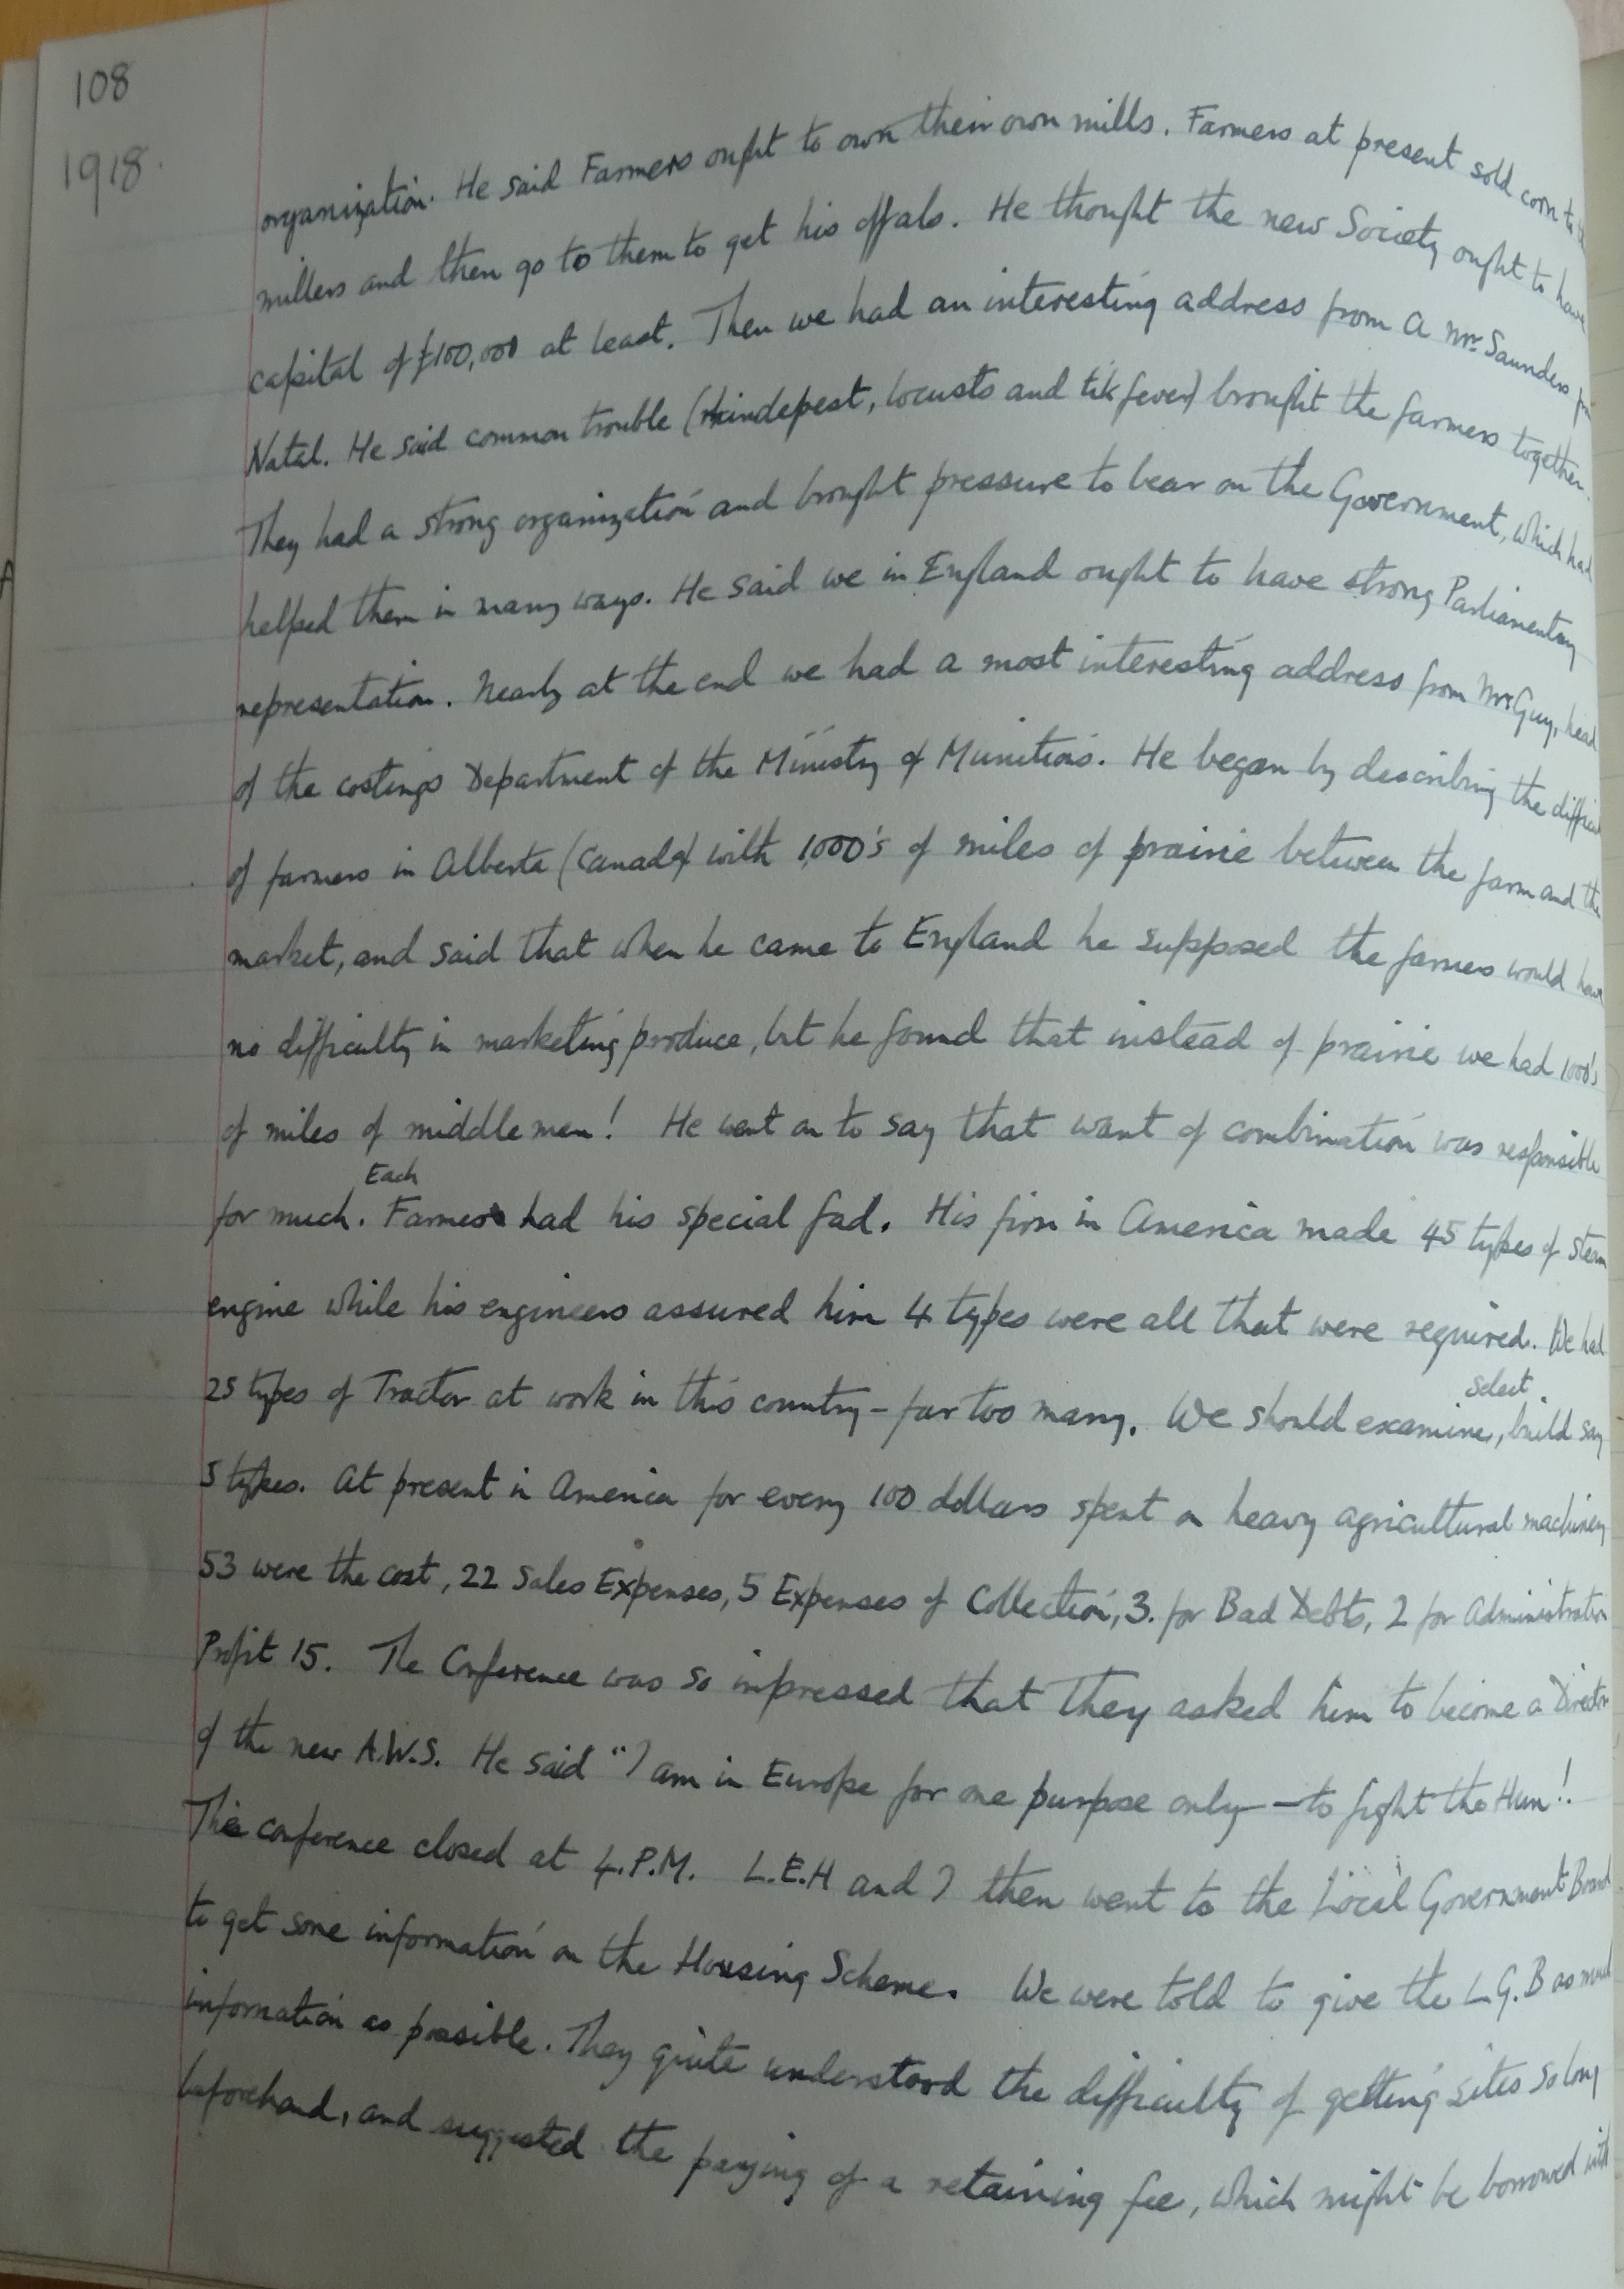 108
1918.
organization. He said Farmers ought to own their own mills. Farmers at present sold corn to the
millers and then go to them to get his offals. He thought the new Society ought to have
capital of £100,000 at least. Then we had an interesting address from a Mr. Saunders from
Natal. He said common trouble (rhindepest, locusts and tik fever) brought the farmers together.
They had a strong organization and brought pressure to bear on the Government, which had
helped them in many ways. He said we in England ought to have strong Parliamentary
representation. Nearly at the end we had a most interesting address from Mr Guy, head
of the costings Department of the Ministry of Munitions. He began by describing the
of farmers in Alberta (Canada) with 1,000's of miles of prairie between the farm and the
market, and said that when he came to England he supposed the farmers would have
no difficulty in marketing produce, but he found that instead of prairie we had 1000's
of miles of middlemen! He went on to say that want of combination was responsible
Each
for much. Farmer had his special fad. His firm in America made 45 types of steam
engine while his engineers assured him 4 types were all that were required. We had
25 types of Tractor at work in this country – far too many. We should examine, build say
select.
5 types. At present in America for every 100 dollars spent on heavy agricultural machinery
53 were the cost, 22 Sales Expenses, 5 Expenses of Collection, 3. for Bad Debts, 2 for Administration
Profit 15. The Conference was so impressed that they asked him to become a Director
of the new A.W.S. He said "I am in Europe for one purpose only — to fight the Hun!
The conference closed at 4.P.M. L.E.H and I then went to the Local Government Board
to get some information on the Housing Scheme. We were told to give the L.G.B as much
information as possible. They quite understood the difficulty of getting sites so long
beforehand, and suggested the paying of a retaining fee, which might be borrowed